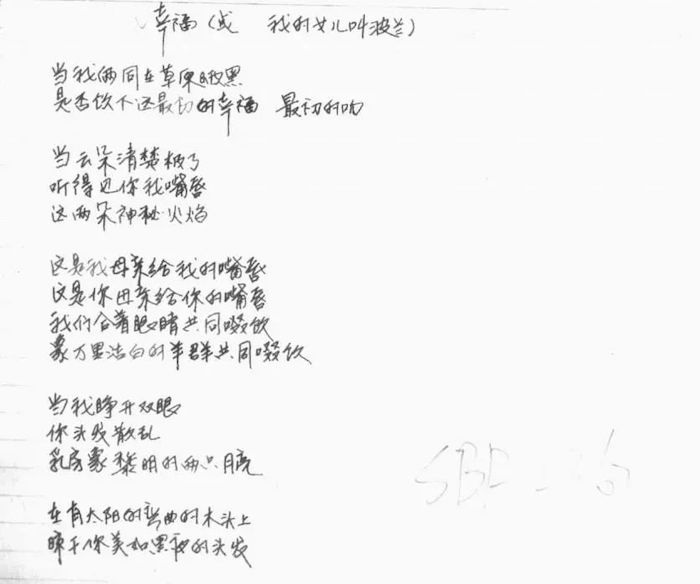 幸福(或　我的女儿叫波兰)
当我俩同在草原晒黑
是否饮下这最初的幸福　最初的吻
当云朵清楚极了
听得见你我嘴唇
这两朵神秘火焰
这是我母亲给我的嘴唇
这是你母亲给你的嘴唇
我们合着眼睛共同啜饮
象万里洁白的羊群共同啜饮
当我睁开双眼
你头发散乱
乳房象黎明的两只月亮
在有太阳的弯曲的木头上
晾干你美如黑夜的头发